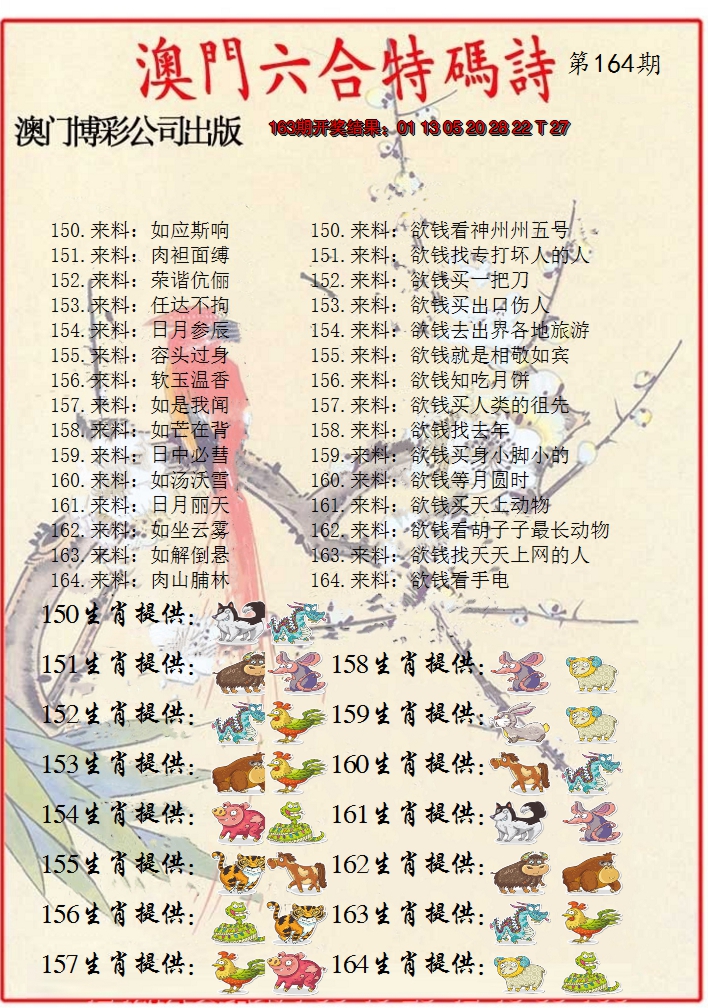 澳門六合特碼詩 第164期
澳门博彩公司出版 163期开奖结果：01 13 05 20 28 22 T 27
150.来料：如应斯响 150.来料：欲钱看神州州五号
151.来料：肉袒面缚 151.来料：欲钱找专打坏人的人
152.来料：荣谐伉俪 152.来料：欲钱买一把刀
153.来料：任达不拘 153.来料：欲钱买出口伤人
154.来料：日月参辰 154.来料：欲钱去出界各地旅游
155.来料：容头过身 155.来料：欲钱就是相敬如宾
156.来料：软玉温香 156.来料：欲钱知吃月饼
157.来料：如是我闻 157.来料：欲钱买人类的祖先
158.来料：如芒在背 158.来料：欲钱找去年
159.来料：日中必彗 159.来料：欲钱买身小脚小的
160.来料：如汤沃雪 160.来料：欲钱等月圆时
161.来料：日月丽天 161.来料：欲钱买天上动物
162.来料：如坐云雾 162.来料：欲钱看胡子子最长动物
163.来料：如解倒悬 163.来料：欲钱找天天上网的人
164.来料：肉山脯林 164.来料：欲钱看手电
150生肖提供：
151生肖提供： 158生肖提供：
152生肖提供： 159生肖提供：
153生肖提供： 160生肖提供：
154生肖提供： 161生肖提供：
155生肖提供： 162生肖提供：
156生肖提供： 163生肖提供：
157生肖提供： 164生肖提供：